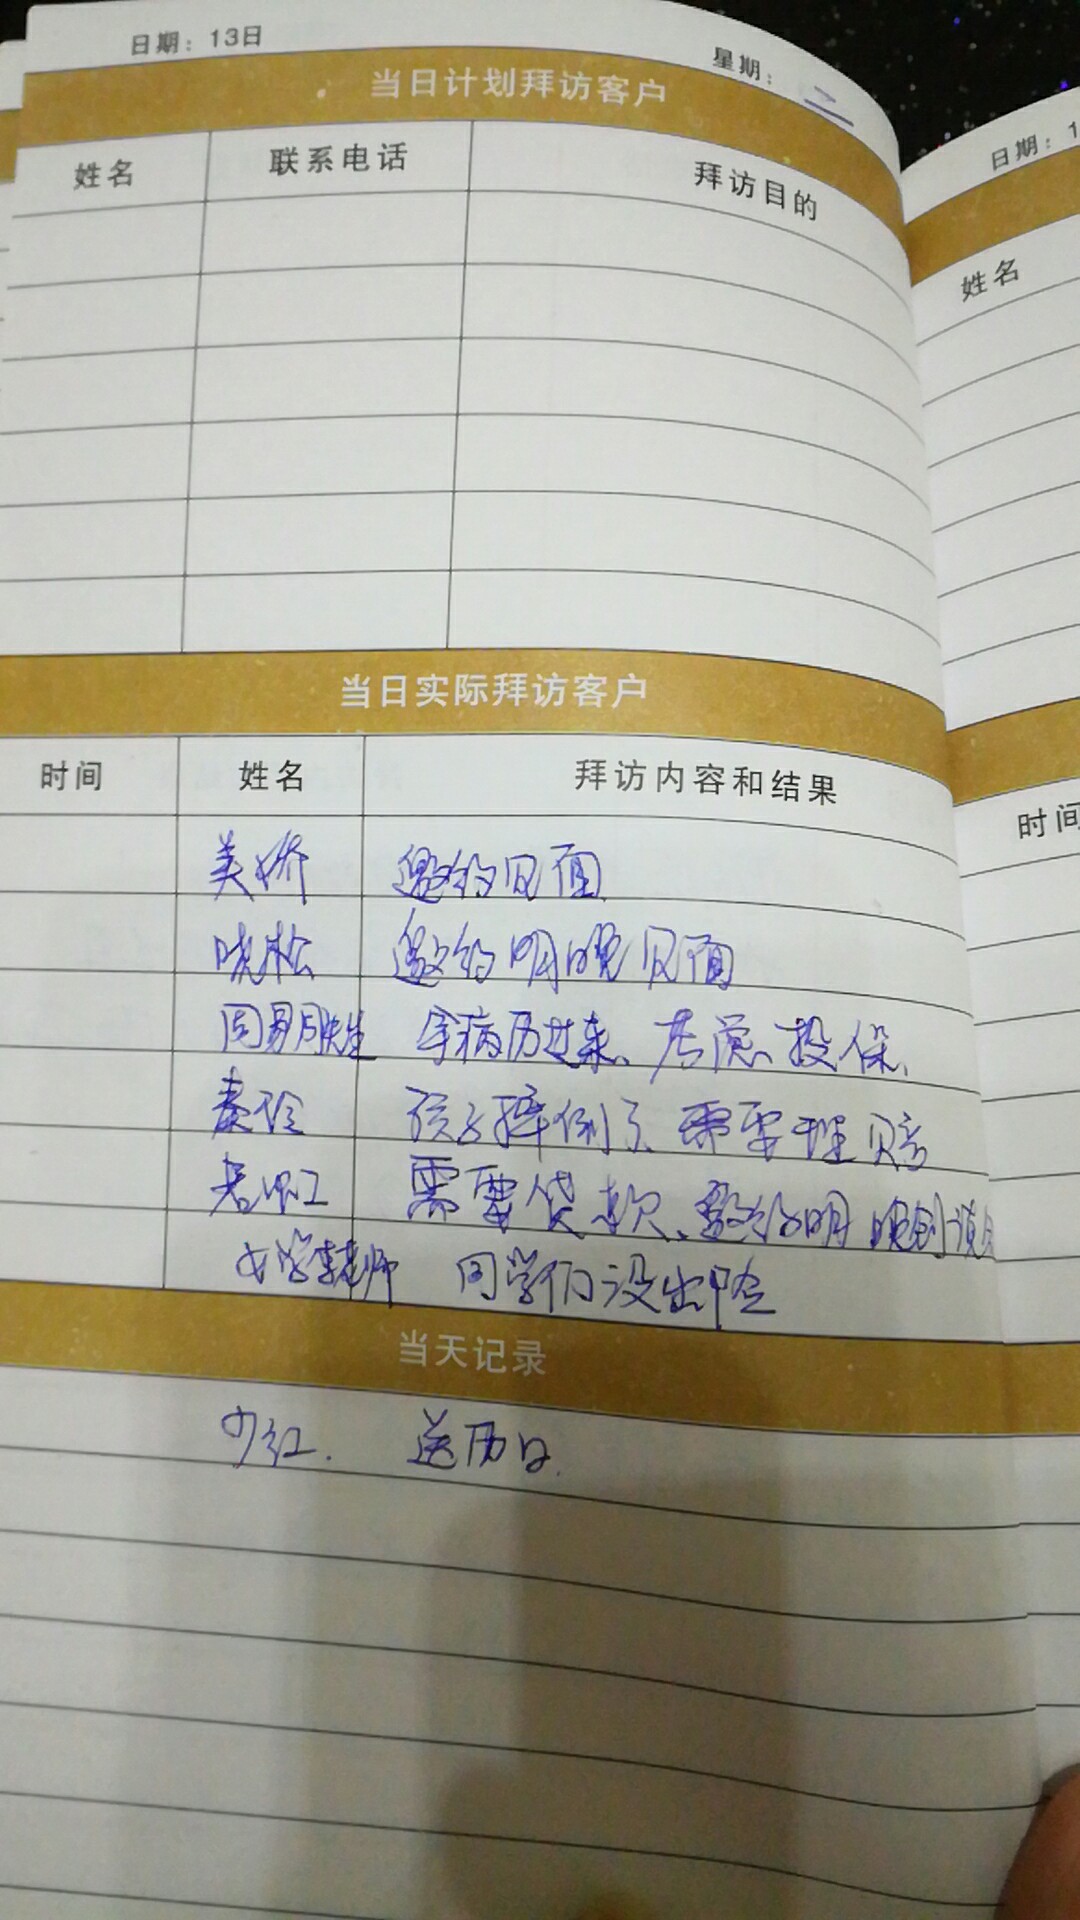 日期：13日 星期：二
当日计划拜访客户
姓名 联系电话 拜访目的
当日实际拜访客户
时间 姓名 拜访内容和结果
美娇 邀约见面
晓松 邀约明晚见面
拿病历过来、考虑、投保、
孩子摔倒了、需要理赔
需要贷款、邀约明晚
老师 同学们没出险
当天记录
少红. 送历日.
日期：1
姓名
时间